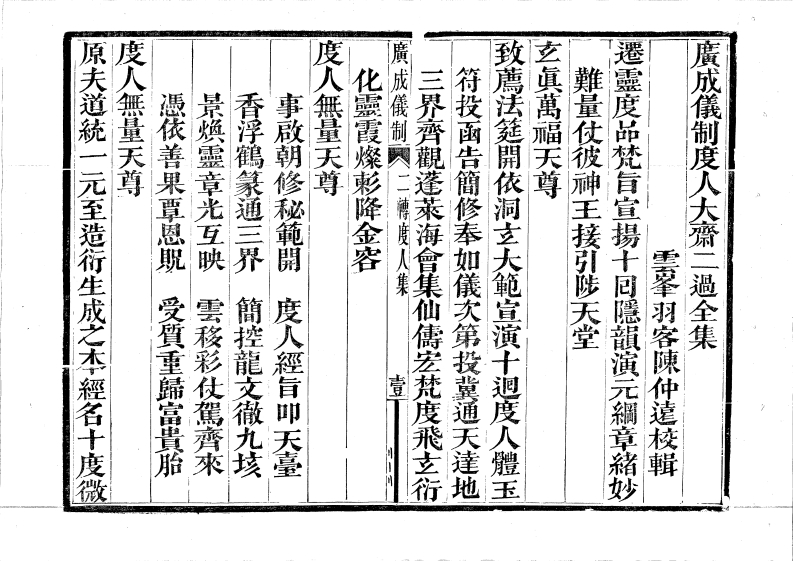 廣成儀制度人大齋二過全集
雲峯羽客陳仲遠校輯
遷靈度品梵旨宣揚十回隱韻演元綱章緒妙
難量仗彼神王接引陟天堂
玄眞萬福天尊
致薦法筵開依洞玄大範宣演十迴度人體玉
符投函告簡修奉如儀次第投冀通天達地
三界齊觀蓬萊海會集仙儔宏梵度飛玄衍
廣成儀制 二轉度人集 壹
化靈霞燦彩降金容
度人無量天尊
事啟朝修秘範開 度人經旨叩天臺
香浮鶴篆通三界 簡控龍文徹九垓
景煥靈章光互映 雲移彩仗駕齊來
憑依善果覃恩貺 受質重歸富貴胎
度人無量天尊
原夫道統一元至造衍生成之本經名十度微